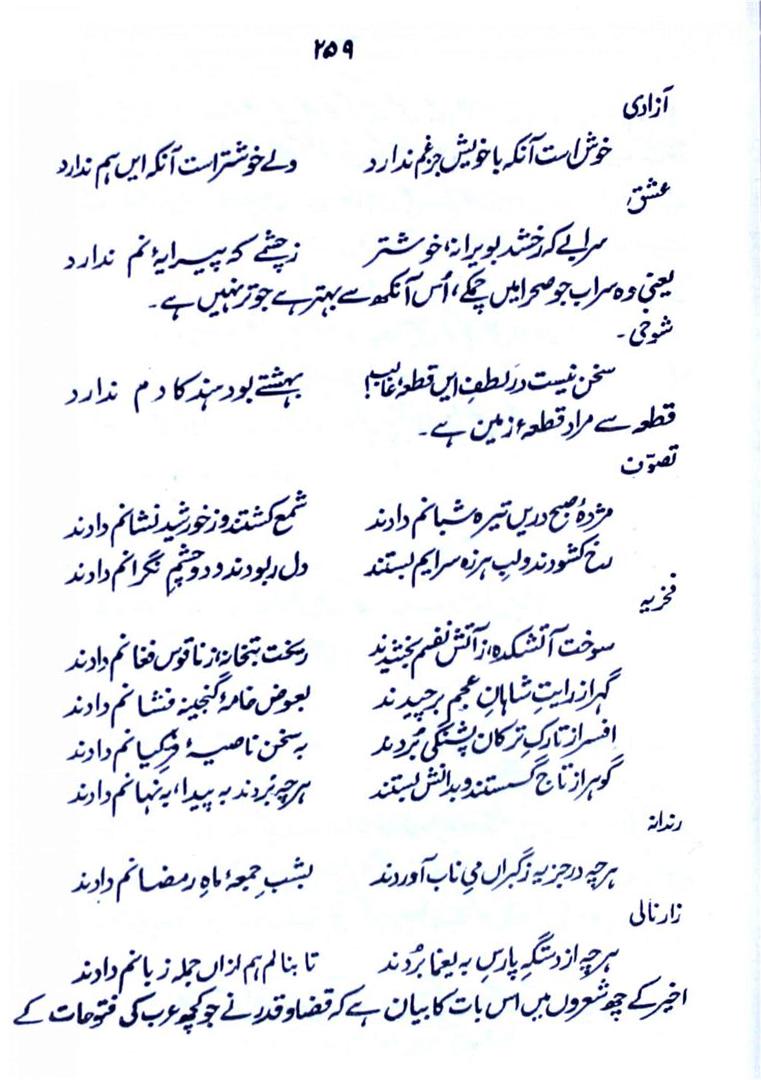 ۲۵۹
آزادی
خوش است آنکہ با خویش جز غم ندارد ولے خوشتر است آنکہ ایں ہم ندارد
عشق
سرابے کہ رخشد بویرانہ، خوشتر زچشمے کہ پیرایۂ نم ندارد
یعنی وہ سراب جو صحرا میں چمکے، اُس آنکھ سے بہتر ہے جو تر نہیں ہے۔
شوخی۔
سخن نیست در لطفِ ایں قطعہ غالب! بہشتے بود ہند کا دم ندارد
قطعہ سے مراد قطعۂ زمین ہے۔
تصوّف
مژدۂ صبح دریں تیرہ شبانم دادند شمع کشتند و ز خورشید نشانم دادند
رخ کشودند و لب ہرزہ سرایم بستند دل ربودند و دو چشمِ نگرانم دادند
فخریہ
سوخت آتشکدہ، ز آتش نفسم بخشیدند ریخت بتخانہ، ز ناقوس فغانم دادند
گہر از رایتِ شاہانِ عجم برچیدند بعوض خامۂ گنجینہ فشانم دادند
افسر از تارکِ ترکان پشنگی بُردند بہ سخن ناصیۂ فرِّ کیانم دادند
گوہر از تاج گسستند و بدانش بستند ہرچہ بُردند بہ پیدا، بہ نہانم دادند
رندانہ
ہرچہ در جزیہ ز گبراں مےِ ناب آوردند بشبِ جمعۂ ماہِ رمضانم دادند
زارنالی
ہرچہ از دستگہِ پارس بہ یغما بُردند تا بنالم ہم ازاں جملہ زبانم دادند
اخیر کے چھ شعروں میں اس بات کا بیان ہے کہ قضا و قدر نے جو کچھ عرب کی فتوحات کے